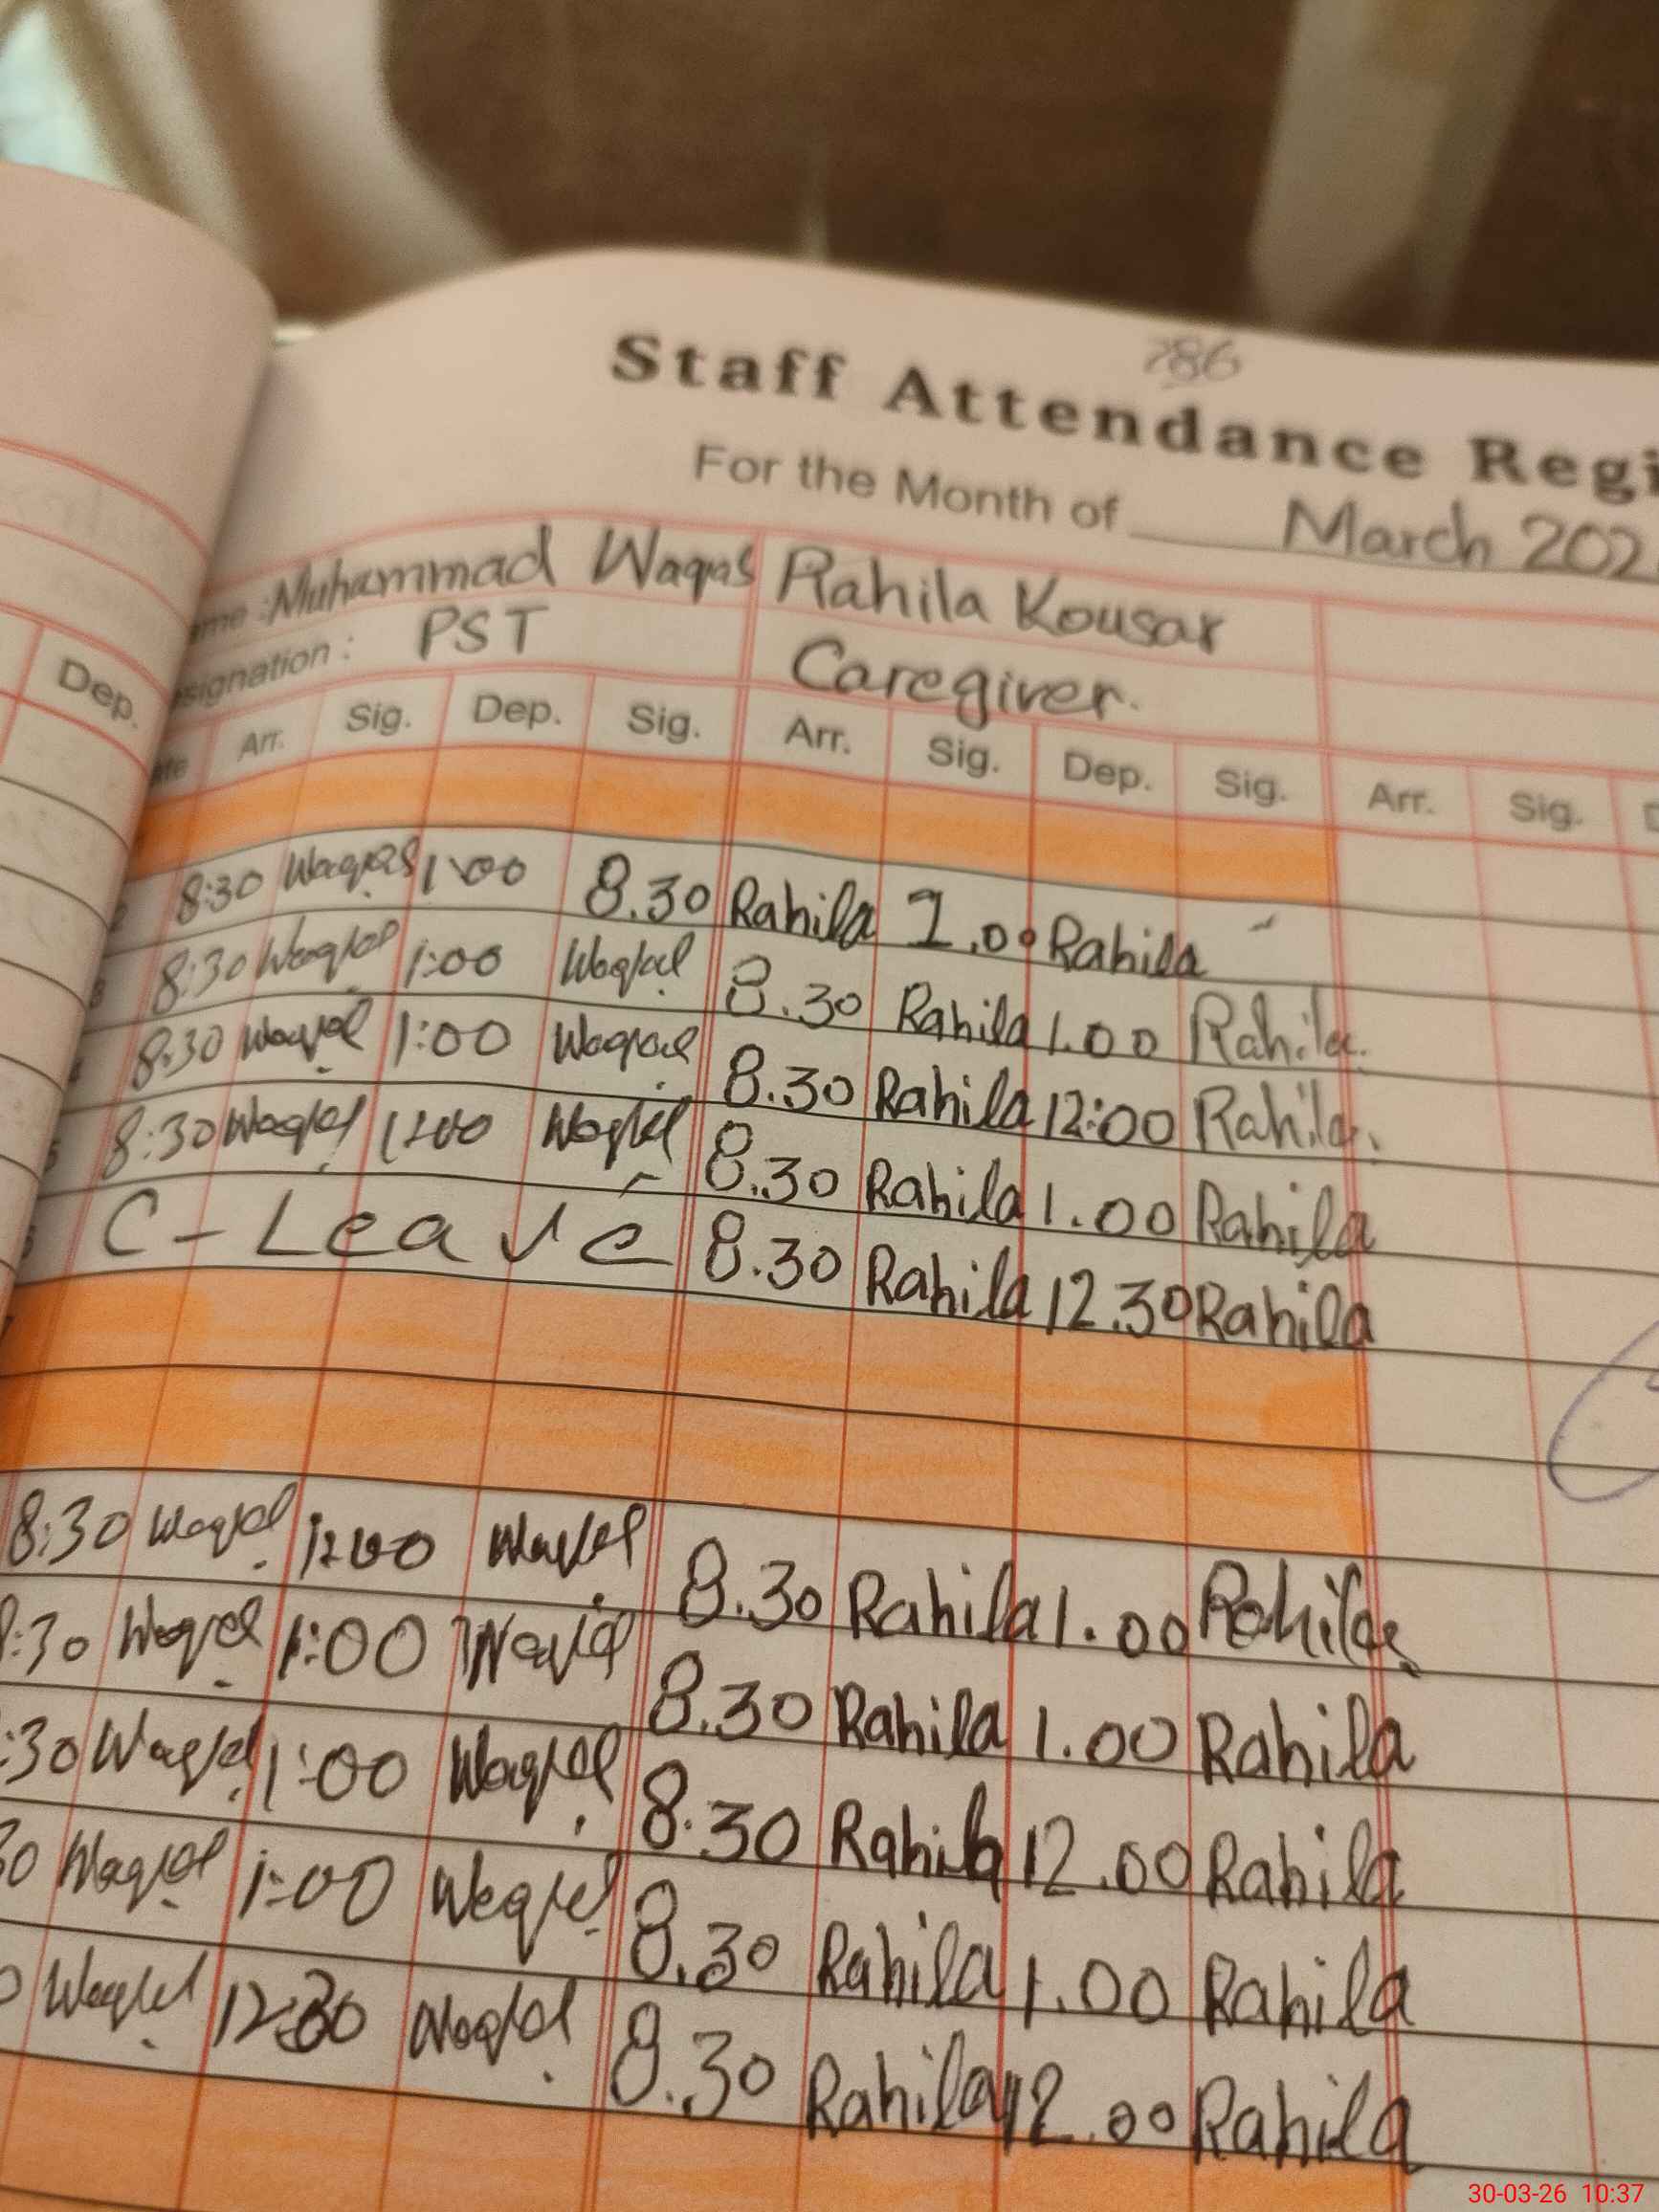 786
Staff Attendance Regi
For the Month of March 202
me : Muhammad Waqas Rahila Kousar
signation : PST Caregiver.
Dep.
Arr. Sig. Dep. Sig. Arr. Sig. Dep. Sig. Arr. Sig.
8:30 Waqas 1:00 8.30 Rahila 1.00 Rahila
8:30 Waqas 1:00 Waqas 8.30 Rahila 1.00 Rahila.
8:30 Waqas 1:00 Waqas 8.30 Rahila 12:00 Rahila.
8:30 Waqas Waqas 8.30 Rahila 1.00 Rahila
C - Leave 8.30 Rahila 12.30 Rahila
8:30 Waqas Waqas 8.30 Rahila 1.00 Rahila
:30 Waqas 1:00 Waqas 8.30 Rahila 1.00 Rahila
:30 Waqas 1:00 Waqas 8.30 Rahila 12.00 Rahila
30 Waqas 1:00 Waqas 8.30 Rahila 1.00 Rahila
0 Waqas Waqas 8.30 Rahila 12.00 Rahila
30-03-26 10:37